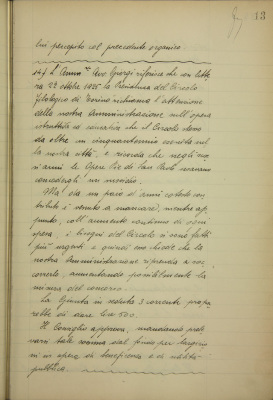 13
bii percepito col precedente organico.
14) L'Amm.re Avv. Giorgi riferisce che con lette-
ra 22 ottobre 1925 la Presidenza del Circolo
filologico di Torino richiama l'attenzione
della nostra Amministrazione sull'opera
istruttiva ed educativa che il Circolo stesso
da oltre un cinquantennio esercita nel-
la nostra città, e ricorda che negli scor-
si anni le Opere Pie di San Paolo usavano
concedergli un sussidio.
Ma da un paio d'anni cotesto con-
tributo è venuto a mancare, mentre ap-
punto, coll'aumento continuo di ogni
spesa, i bisogni del Circolo si sono fatti
più urgenti e quindi ora chiede che la
nostra Amministrazione riprenda a soc-
correrlo, aumentando possibilmente la
misura del concorso.
La Giunta in seduta 3 corrente propor-
rebbe di dare Lire 500.
Il Consiglio approva, mandando prele-
varsi tale somma dal fondo per largizio-
ni in opere di beneficenza e di utilità
pubblica.